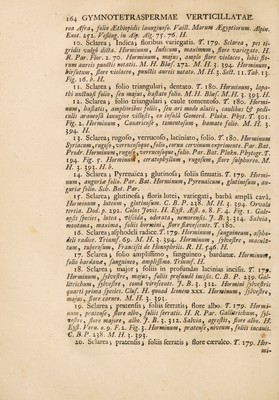 164 GYMNOTETRASPERMAE VERTICILLATAE.
rea Asra, folio Æthiopidis lanuginoso. Vaill. Marum Ægyptiorum. Alpin.
Exot. 252. Vesling. in Alp. Æg. 75. 76. H.
10. Sclarea; Indica; floribus variegatis. T. 179. Sclarea, pes ti-
gridis vulgò dicta. Horminum, Indicum, maximum, flore variegato. H.
R. Par. Flor. 2. 70. Horminum, majus, amplo flore violaceo, labii flo-
rum aureis punctis notatis. M. H. Blæs. 272. M. H. 3. 394. Horminum,
hirsutum, flore violaceo, punctis aureis notato. M. H. 3. Sect. 11. Tab. 13.
Fig. 16. b. H.
11. Sclarea; folio triangulari, dentato. T. 180. Horminum, lapa-
thi unctuosi folio, seu majus, hastato folio. M. H. Blæs. M. H. 3. 393. H.
12. Sclarea; folio triangulari; caule tomentoso. T. 180. Hormi-
num, hastatis, amplioribus foliis, seu ari modo alatis, caulibus & pedi-
culis araneosâ lanugine villosis, ex insulis Gomerâ. Plukn. Phyt. T. 301.
Fig. 2. Horminum, Canariense, tomentosum, hastato folio. M. H. 3.
394. H.
13. Sclarea; rugoso, verrucoso, laciniato, folio. T. 180. Horminum
Syriacum, rugoso-verrucosoque folio, cornu cervinum exprimente. Par. Bat.
Prodr. Horminum, rugoso, verrucosoque, folio. Par. Bat. Plukn. Phytogr. T.
194. Fig. 5. Horminum, ceratophyllum, rugosum, flore sulphureo. M.
H. 3. 393. b.
14. Sclarea; Pyrenaica; glutinosa; foliis sinuatis. T. 179. Hormi-
num, auguriæ folio. Par. Bat. Horminum, Pyrenaicum, glutinosum, au-
guriæ folio. Sch. Bot. Par.
15. Sclarea; glutinosa; floris lutei, variegati, barbâ amplâ cavâ.
Horminum, luteum, glutinosum. C. B. P. 238. M. H. 3. 394. Orvala
tertia. Dod. p. 292. Colus Jovis. H. Eyst. Æst. o. 8. F. 4. Fig. 1. Gale-
opsis species, lutea, viscida, odorata, nemorensis. J. B. 3. 314. Salvia,
montana, maxima, foliis hormini, flore flavescente. T. 180.
16. Sclarea; asphodeli radice. T. 179. Horminum, sanguineum, aspho-
deli radice. Triumf. 69. M. H. 3. 394. Horminum, sylvestre, macula-
tum, tuberosum, Francisci de Onuphriis. R. H. 546. H.
17. Sclarea; folio amplissimo, sanguineo, bardanæ. Horminum,
folio bardanæ, sanguineo, amplissimo. Triumf. H.
18. Sclarea; major; foliis in profundas lacinias incisis. T. 179.
Horminum, sylvestre, majus, foliis profundè incisis. C. B. P. 239. Gal-
litrichum, sylvestre, comâ virescente. J. B. 3. 312. Hormini sylvestris
quarti prima species. Clus. H. quoad Iconem xxx. Horminum, sylvestre,
majus, flore carneo. M. H. 3. 393.
19. Sclarea; pratensis; foliis serratis, flore albo. T. 179. Hormi-
num, pratense, flore albo, foliis serratis. H. R. Par. Gallitrichum, syl-
vestre, flore majore, albo. J. B. 3. 312. Salvia, agrestis, flore albo. H.
Eyst. Vern. o. 9. F. 2. Fig. 3. Horminum, pratense, niveum, foliis incanis.
C. B. P. 238. M. H. 3. 393.
20. Sclarea; pratensis; foliis serratis; flore cæruleo. T. 179. Hor-
mi-